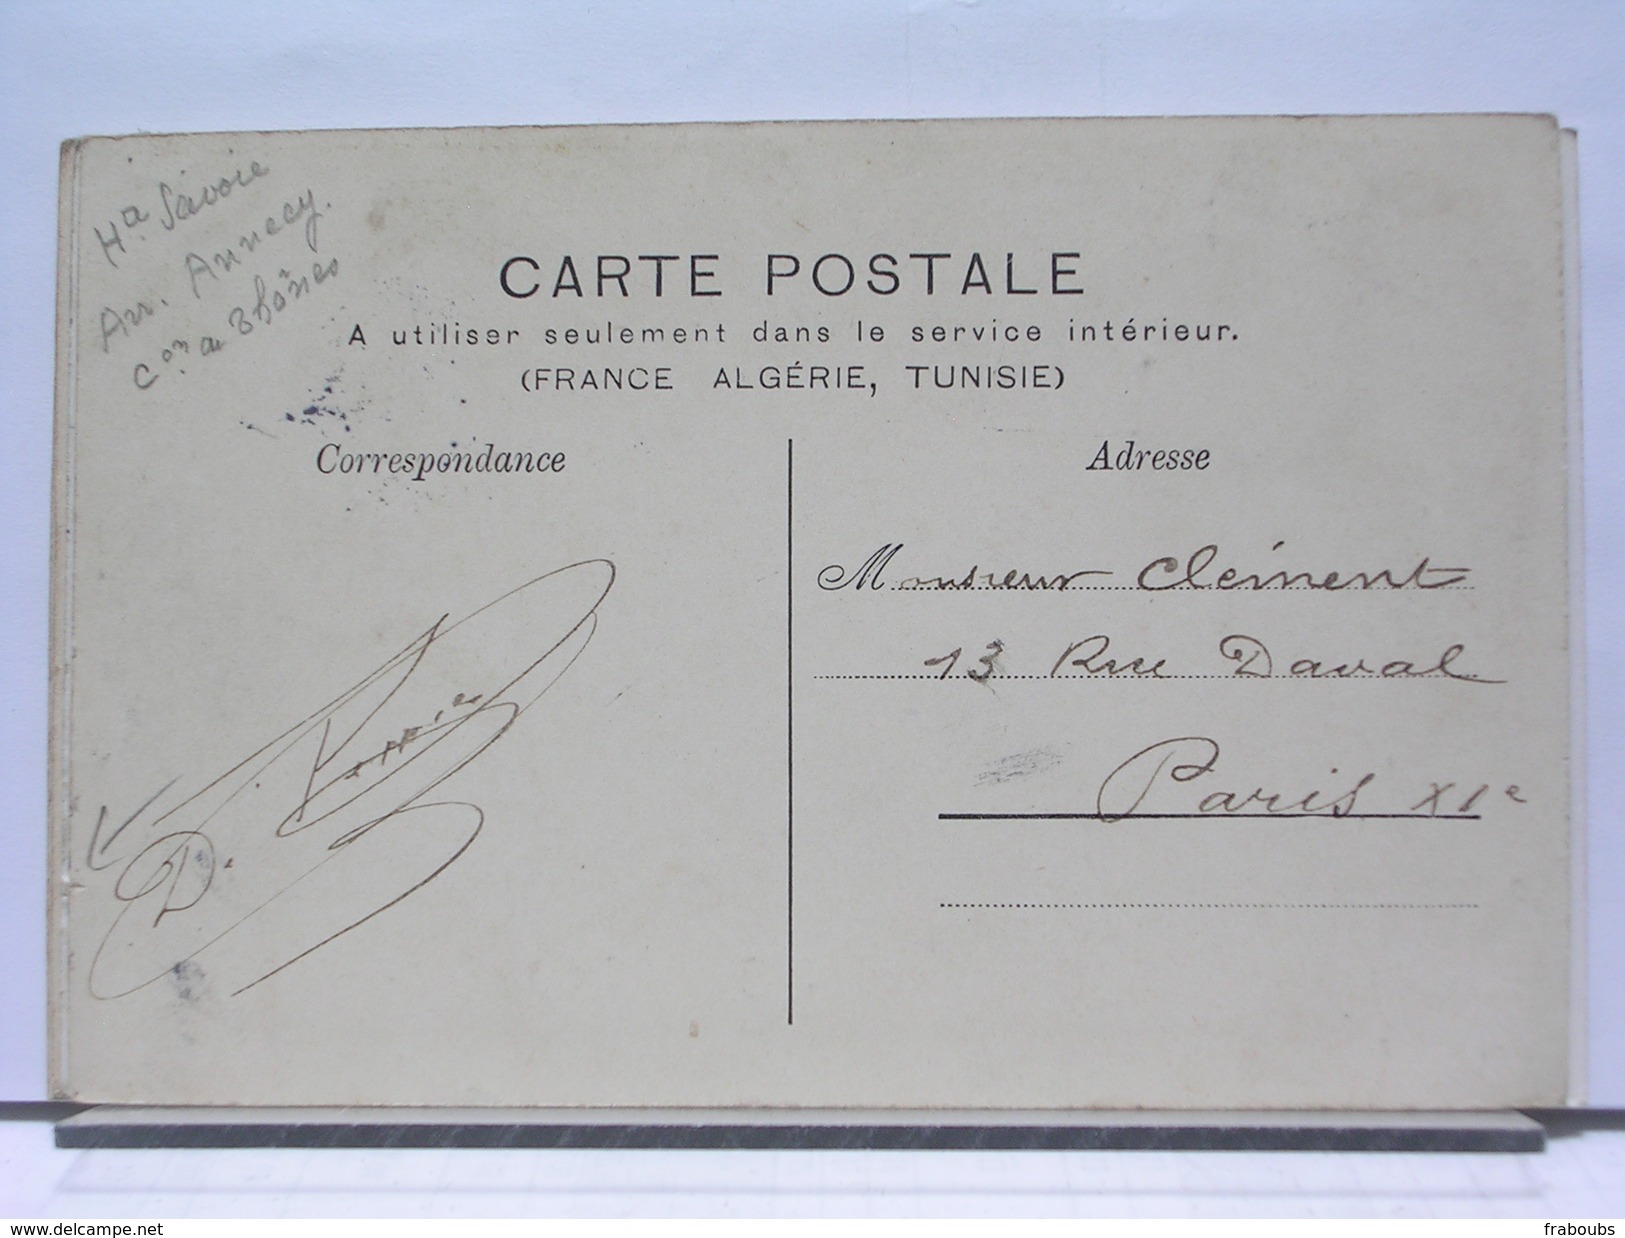 Hª Savoie
Arr. Annecy.
Cºⁿ de Thônes
CARTE POSTALE
A utiliser seulement dans le service intérieur.
(FRANCE ALGÉRIE, TUNISIE)
Correspondance
Adresse
Monsieur Clément
13 Rue Daval
Paris XIe
D.
www.delcampe.net
fraboubs